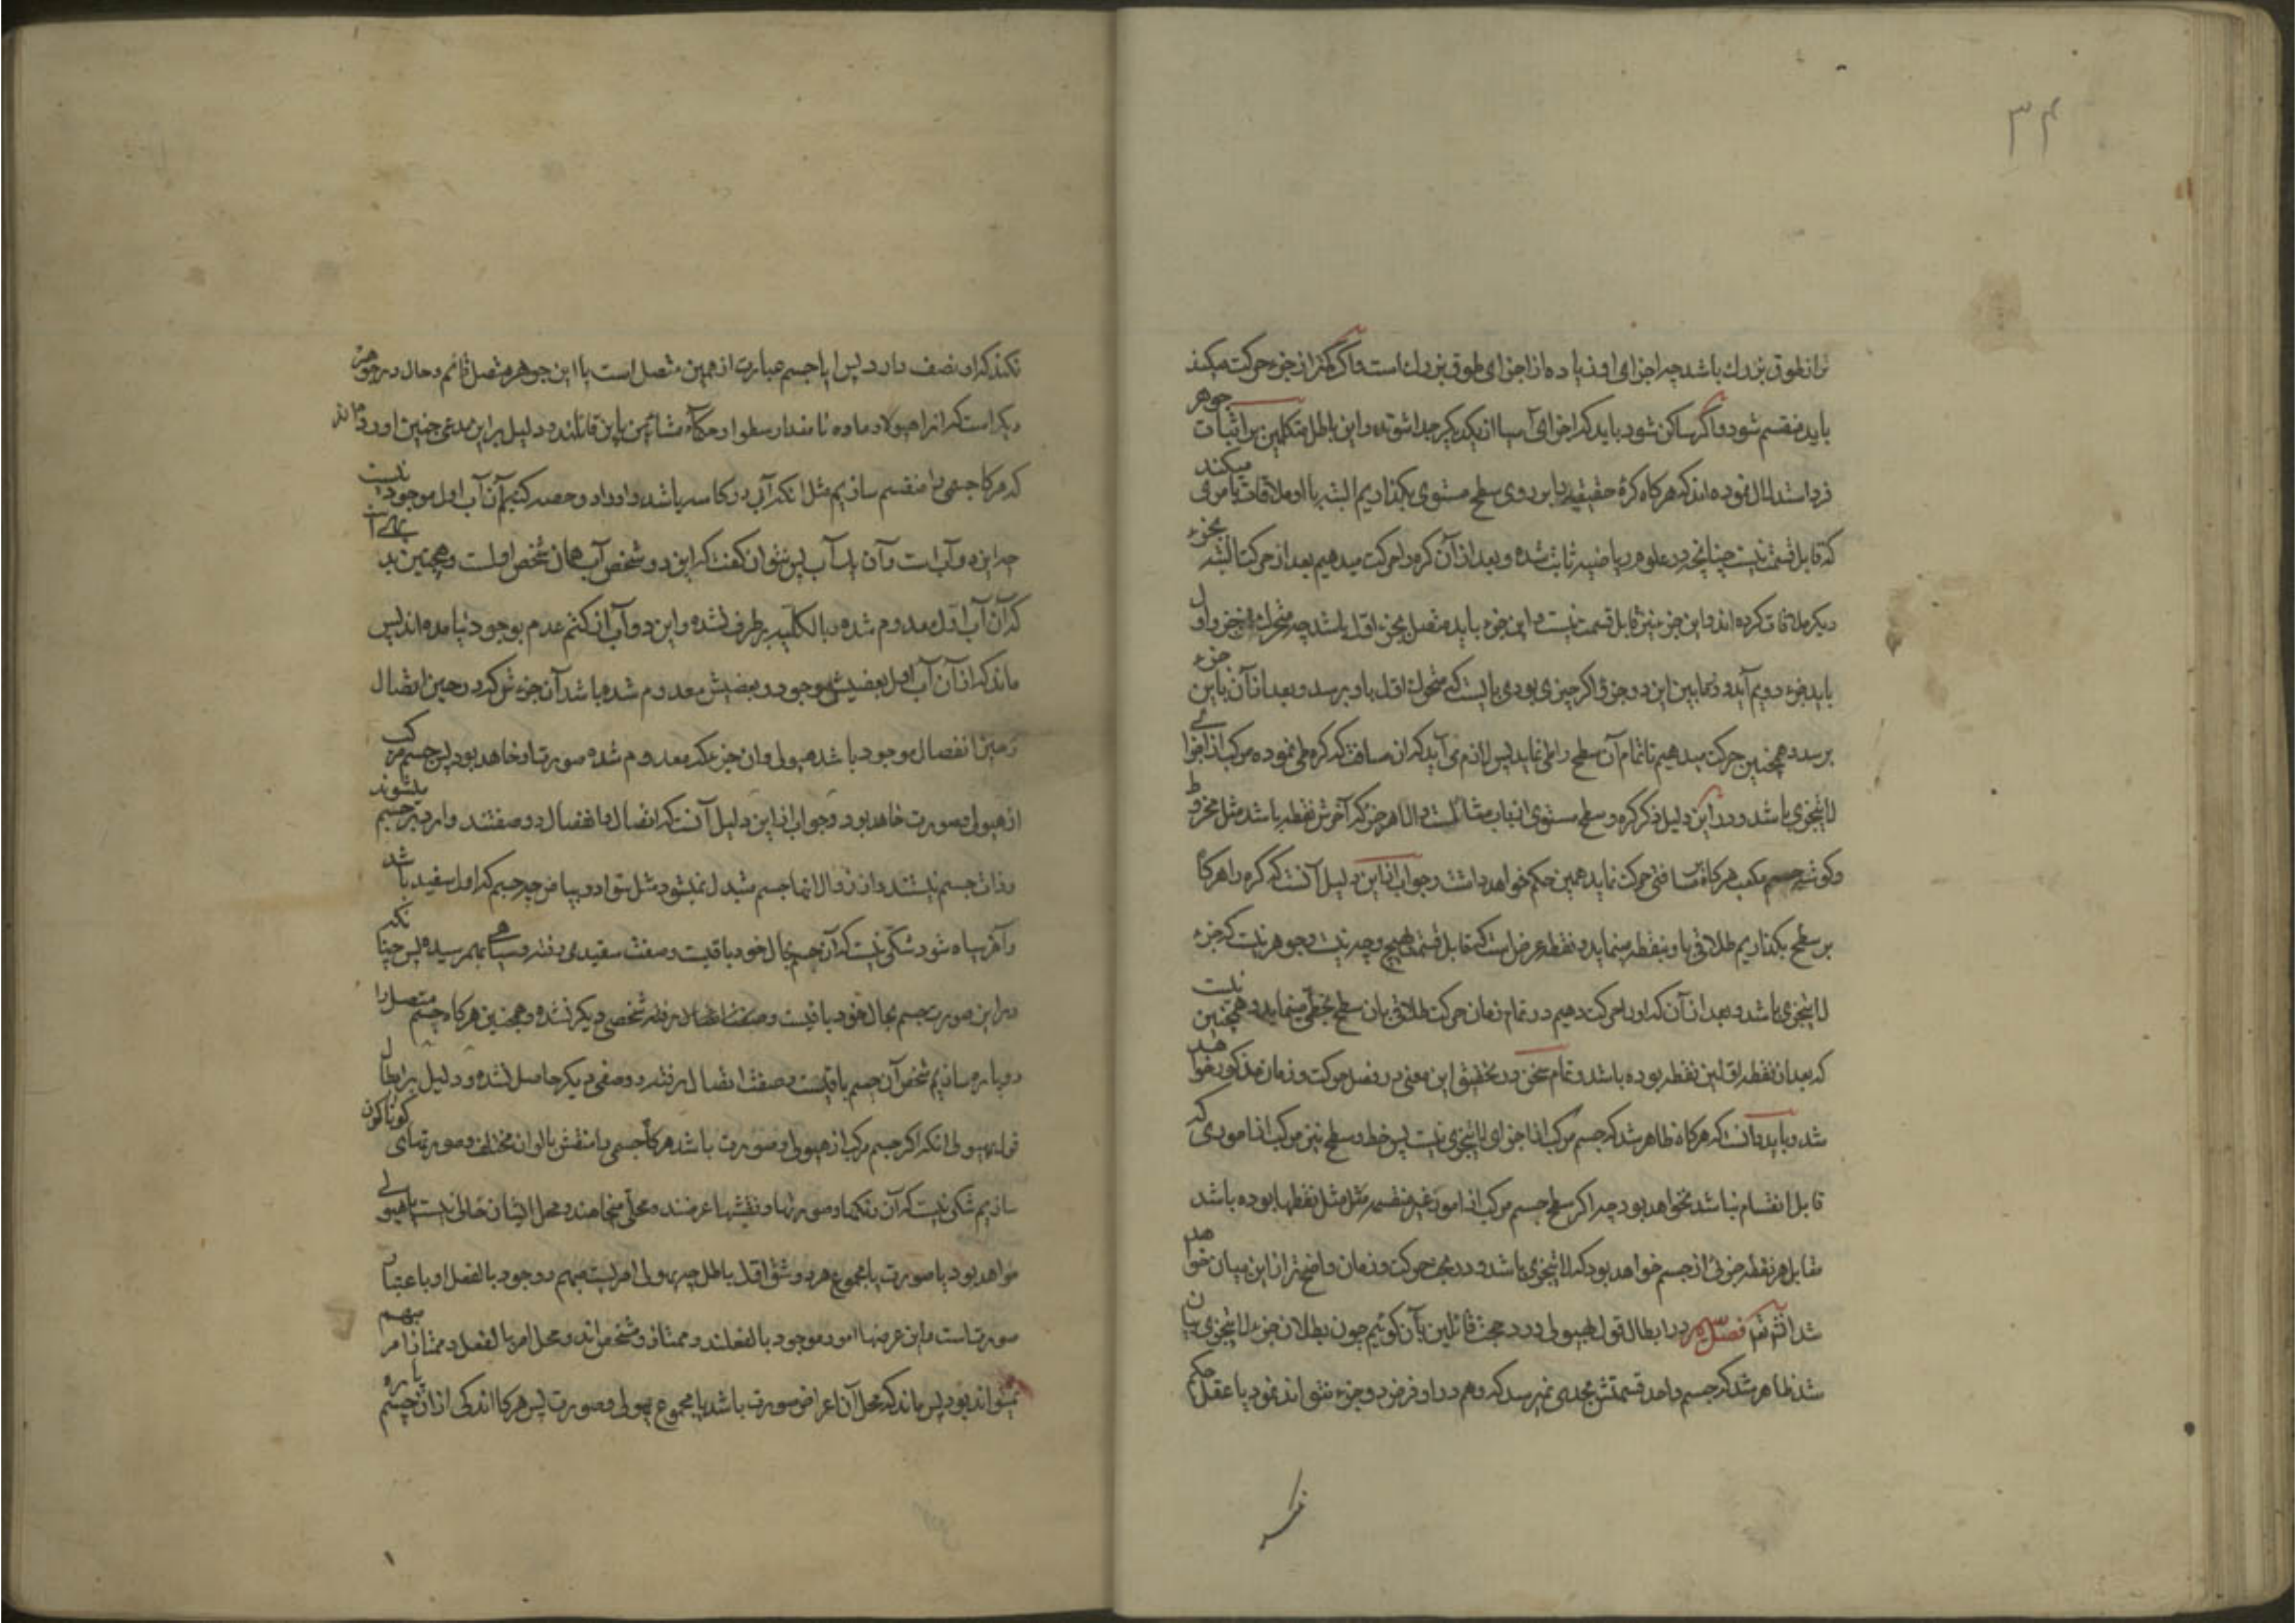 ۳۴
تر از طوق بزرك باشد چه اجزای او زیاده از اجزای طوق بزرك است و اگر کمتر از جزء حرکت میکند
باید منقسم شود و اگر ساکن شود باید که اجزای آسیا از یکدیکر جدا شوند و این باطل متکلمین بر اثبات جوهر
فرد استدلال نموده اند که هرکاه کرهٔ حقیقیه را بر روی سطح مستوی بکذاریم البته با او ملاقات بامری میکند
که قابل قسمت نیست چنانچه در علوم ریاضیه ثابت شده و بعد از آن کره را حرکت میدهیم بعد از حرکت البته بجزء
دیکر ملاقات کرده اند و این جزء نیز قابل قسمت نیست و این جزء باید متصل بجزء اول باشد چه متحرك از جزء اول
باید بجزء دویم آید و فیمابین این دو جزء اکر چیزی بودی بایست که متحرك اول باو برسد و بعد از آن باین جزء
برسد و همچنین حرکت میدهیم تا تمام آن سطح را طی نماید پس لازم می آید که ان مسافت که کره طی نموده مرکب از اجزائی
لایتجزی باشد و در این دلیل ذکر کره و سطح مستوی از باب مثالست والا هر جزء که آخرش نقطه باشد مثل مخروط
و کوشه جسم مکعب هرکاه بر مسافتی حرکت نماید همین حکم خواهد داشت و جواب از این دلیل آنست که کره را هرکاه
بر سطح بکذاریم طلاقی باو بنقطه مینماید و نقطه عرض است که قابل قسمت بهیچ وجه نیست و جوهر نیست که جزء
لایتجزی باشد و بعد از آن که او را حرکت دهیم در تمام زمان حرکت طلاقی بان سطح بخطی مینماید و همچنین نیست
که بعد از نقطه اولین نقطه بوده باشد و تمام سخن در تحقیق این معنی در فصل حرکت و زمان مذکور خواهد
شد و باید دانست که هرکاه ظاهر شد که جسم مرکب از اجزای لایتجزی نیست پس خط و سطح نیز مرکب از اموری که
قابل انقسام نباشد نخواهد بود چه اکر سطح جسم مرکب از امور غیر منقسمه مثل نقطها بوده باشد
مقابل هر نقطه جزئی از جسم خواهد بود که لایتجزی باشد و در بحث حرکت و زمان واضحتر از این بیان خواهد
شد انشاءالله فصل در ابطال قول بهیولی و رد حجت قائلین بآن کوئیم چون بطلان جزء لایتجزی بیان
شد ظاهر شد که جسم واحد قسمتش بحدی نمیرسد که وهم در او فرض دو جزء نتواند نمود یا عقل حکم
نکند که او نصف دارد پس ایا جسم عبارت از همین متصل است یا این جوهر متصل قائم و حال در جوهر
دیکر است که انرا هیولا و ماده نامند ارسطو و حکمآء مشائین باین قائلند و دلیل بر این مدعی چنین اورده اند
که هرکاه جسمی را منقسم سازیم مثل انکه آبی در کاسه باشد و او را دو حصه کنیم آن آب اول موجود نیست
چه این دو آب است و آن یك آب پس نتوان کفت که این دو شخص آب همان شخص اولست و همچنین بدیهی است
که آن آب اول معدوم شده و بالکلیه برطرف نشده و این دو آب از کتم عدم بوجود نیامده اند پس
ماند که از آن آب اول بعضیش موجود و بعضیش معدوم شده باشد آن جزءش که در حین اتصال
و حین انفصال موجود باشد هیولی و ان جزء که معدوم شده صورت او خواهد بود پس جسم مرکب
از هیولی و صورت خواهد بود و جواب از این دلیل آنست که اتصال و انفصال دو صفتند و وارد بر جسم میشوند
و ذات جسم نیستند و از زوال انها جسم متبدل نمیشود مثل سواد و بیاض چه جسم که اول سفید باشد
و آخر سیاه شود شکی نیست که آن جسم بحال خود باقیست و صفت سفیدی رفته و سیاهی بهم رسیده پس چنانکه
در این صورت جسم بحال خود باقیست و صفت رفته شخصی دیکر نشده و همچنین هرکاه جسم متصل را
دو پاره سازیم شخص آن جسم باقیست و صفت اتصال رفته و وصفی دیکر حاصل شده و دلیل بر ابطال
قول بهیولی انکه اکر جسم مرکب از هیولی و صورت باشد هرکاه جسمی را منقش بالوان مختلف و صورتهای کوناکون
سازیم شکی نیست که آن رنکها و صورتها و نقشها عرضند و محلی میخواهند و محل ایشان خالی نیست یا هیولی
خواهد بود یا صورت یا مجموع هر دو شق اول باطل چه هیولی امریست مبهم و وجود بالفعل او باعتبار
صورت است و این عرضها امور موجود بالفعلند و ممتاز و مشخص اند و محل امر بالفعل و ممتاز امر مبهم
نمیتواند بود پس ماند که محل آن اعراض صورت باشد یا مجموع هیولی و صورت پس هرکاه اندکی از ان جسم پاره